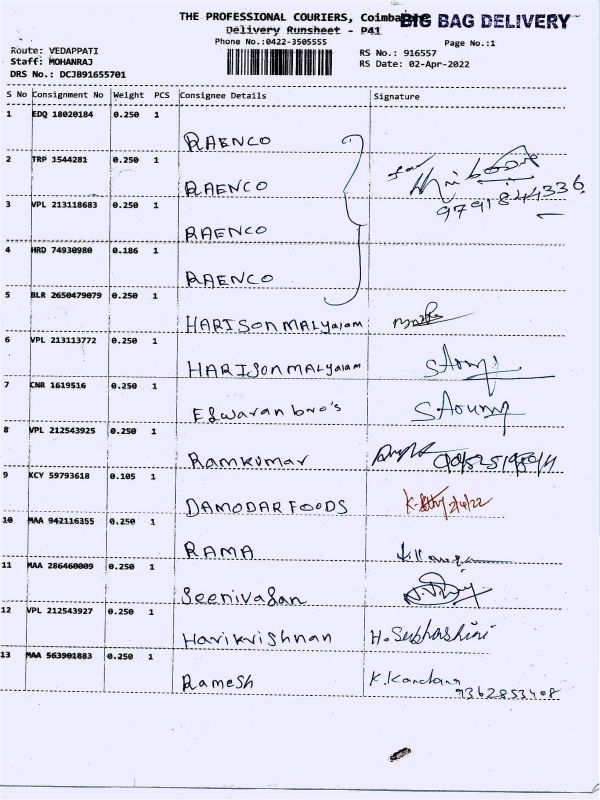 THE PROFESSIONAL COURIERS, Coimbatore
BIG BAG DELIVERY
Delivery Runsheet - P41
Phone No.:0422-3505555
Page No.:1
Route: VEDAPPATI
RS No.: 916557
Staff: MOHANRAJ
RS Date: 02-Apr-2022
DRS No.: DCJB91655701
S No Consignment No Weight PCS Consignee Details Signature
1 EDQ 18020184 0.250 1
RAENCO
2 TRP 1544281 0.250 1
RAENCO
9791844336
3 VPL 213118683 0.250 1
RAENCO
4 HRD 74930980 0.186 1
RAENCO
5 BLR 2650479079 0.250 1
HARISON MALYalam
6 VPL 213113772 0.250 1
HARISON MALYalam
7 CNR 1619516 0.250 1
Eswaran bro's
8 VPL 212543925 0.250 1
Ramkumar
9 KCY 59793618 0.105 1
DAMODAR FOODS
10 MAA 942116355 0.250 1
RAMA
11 MAA 286460009 0.250 1
Seenivasan
12 VPL 212543927 0.250 1
Harikrishnan H. Subhashini
13 MAA 563901883 0.250 1
Ramesh K. Kanchana
9362853408